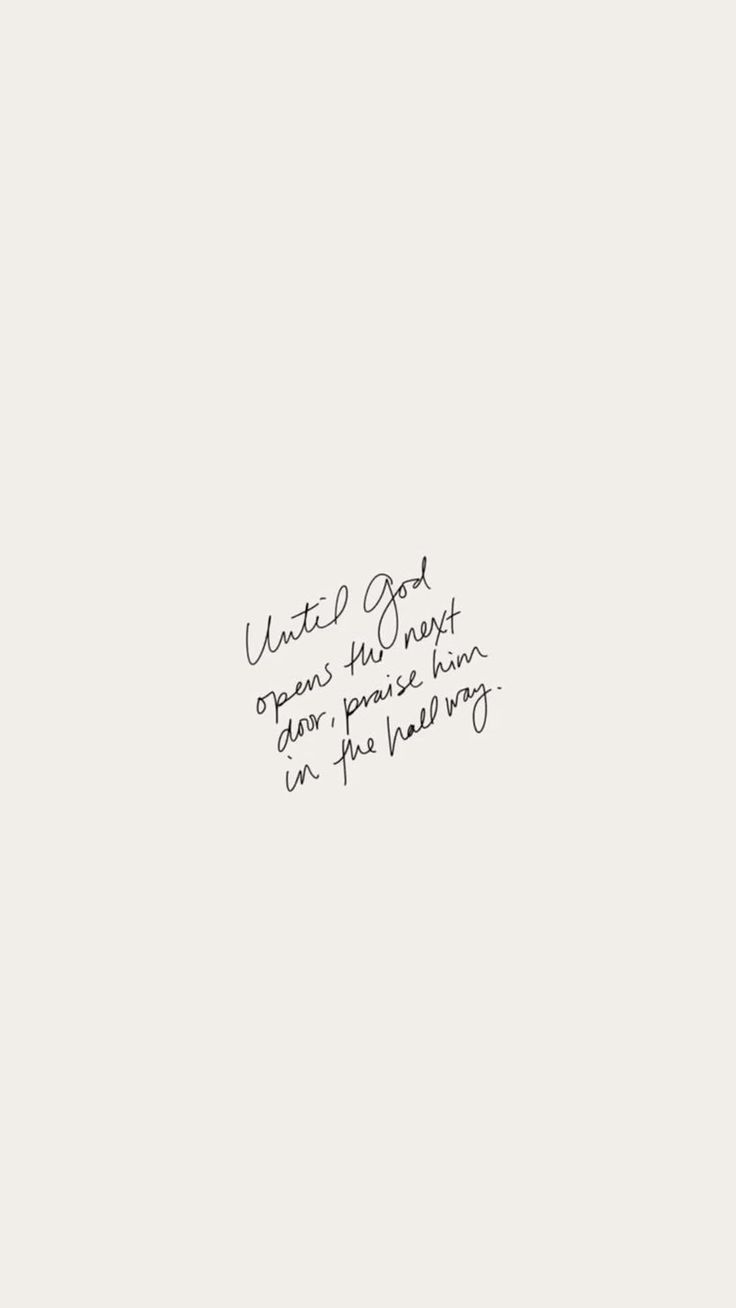 Until God
opens the next
door, praise him
in the hallway.